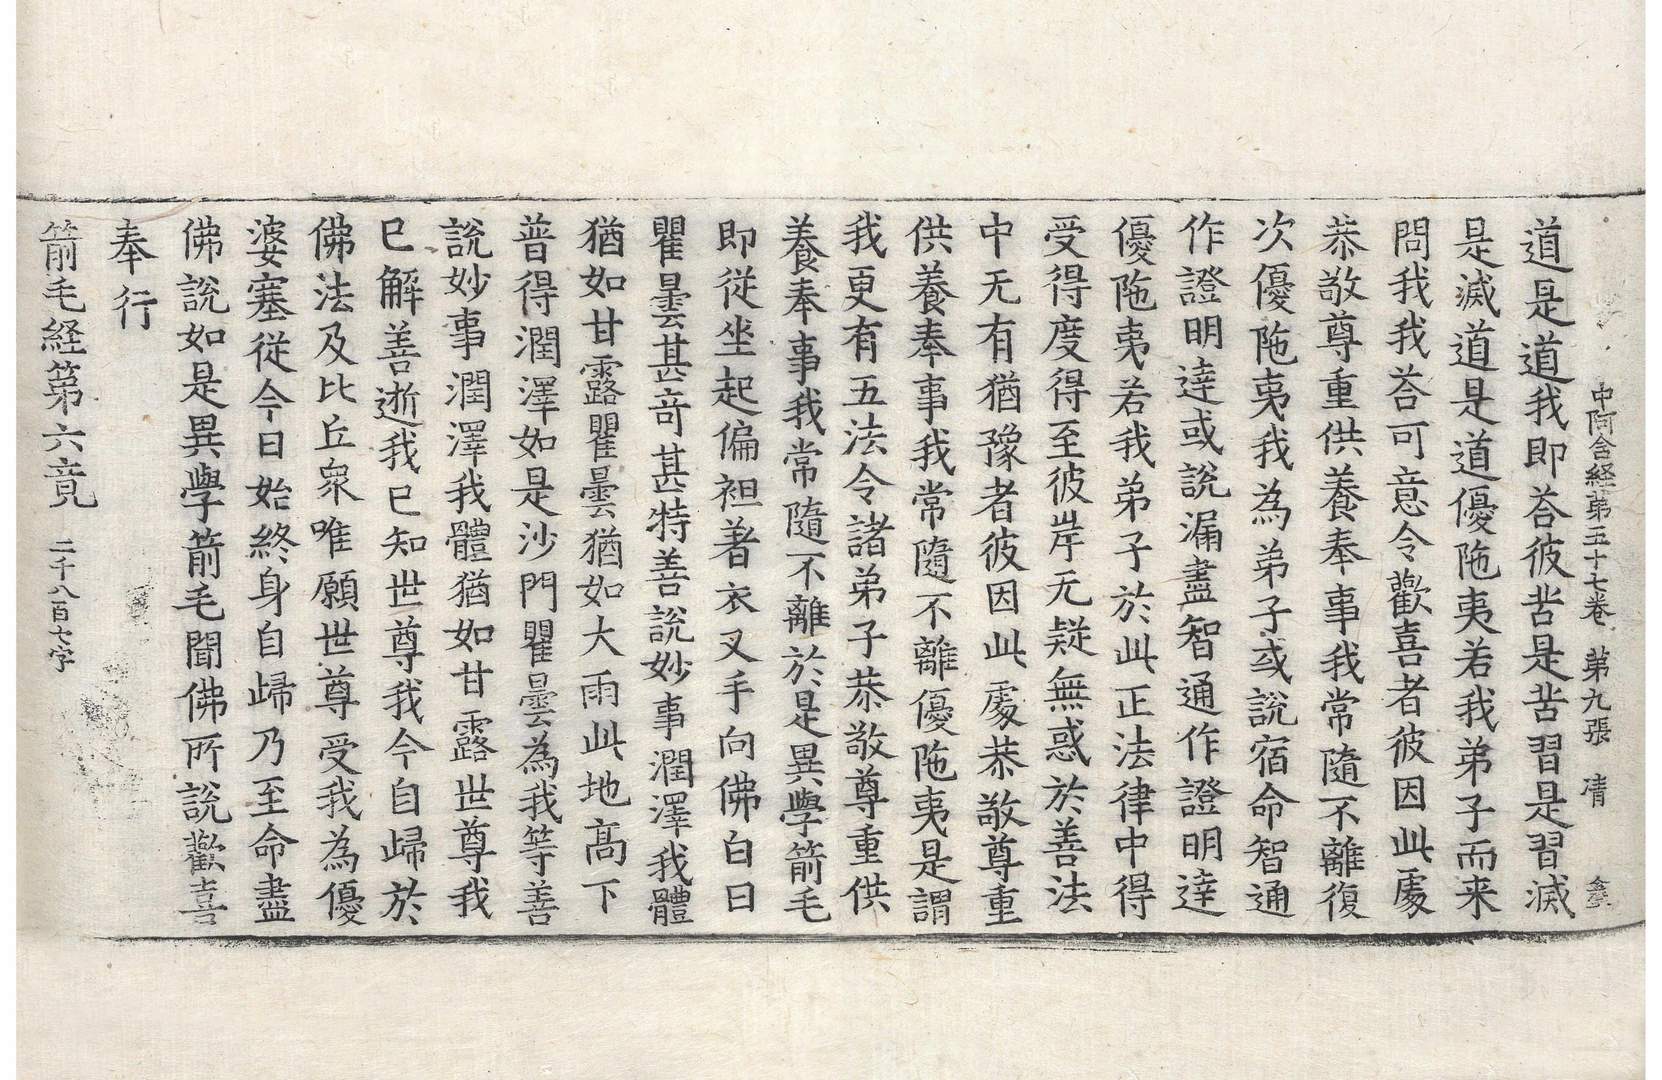 中阿含経第五十七卷 第九張 凊
道是道道我即荅彼苦是苦習是習滅
是滅道是道優陁夷若我弟子而来
問我我荅可意令歡喜者彼因此處
恭敬尊重供養奉事我常隨不離復
次優陁夷我為弟子或說宿命智通
作證明達或說漏盡智通作證明達
優陁夷若我弟子於此正法律中得
受得度得至彼岸无疑無惑於善法
中无有猶豫者彼因此處恭敬尊重
供養奉事我常隨不離優陁夷是謂
我更有五法令諸弟子恭敬尊重供
養奉事我常隨不離於是異學箭毛
即從坐起偏袒著衣叉手向佛白曰
瞿曇甚奇甚特善說妙事潤澤我體
猶如甘露瞿曇猶如大雨此地高下
普得潤澤如是沙門瞿曇為我等善
說妙事潤澤我體猶如甘露世尊我
已解善逝我已知世尊我今自歸於
佛法及比丘衆唯願世尊受我為優
婆塞從今日始終身自歸乃至命盡
佛說如是異學箭毛聞佛所說歡喜
奉行
箭毛経第六竟 二千八百七字